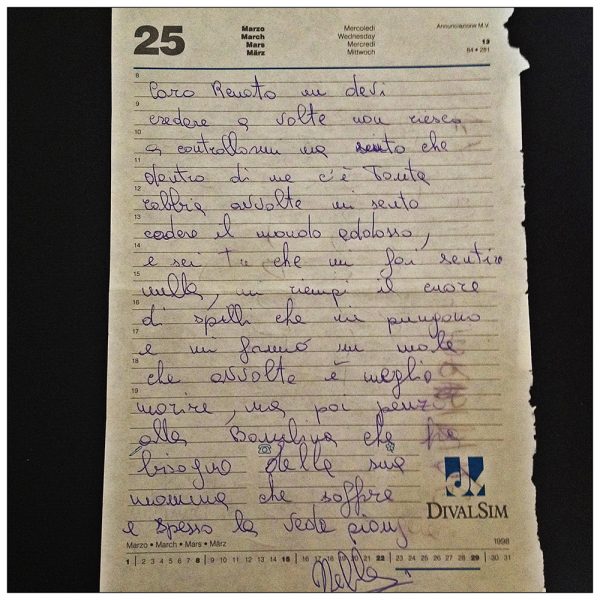 25
Marzo
March
Mars
März
Mercoledì
Wednesday
Mercredi
Mittwoch
Annunciazione M.V.
13
84 • 281
8
Caro Renato mi devi
9
credere a volte non riesco
10
a controllarmi ma sento che
11
dentro di me c'è Tanta
12
rabbia avvolte mi sento
13
cadere il mondo addosso,
14
e sei Tu che mi fai sentire
15
nulla, mi riempi il cuore
16
di spilli che mi pungono
17
e mi fanno un male
18
che avvolte è meglio
19
morire, ma poi penz
alla Bambina che fa
bisogno della sua
mamma che soffre
e spesso la vede
DIVALSIM
Marzo • March • Mars • März
1998
1 2 3 4 5 6 7 8 9 10 11 12 13 14 15 16 17 18 19 20 21 22 23 24 25 26 27 28 29 30 31
Nella